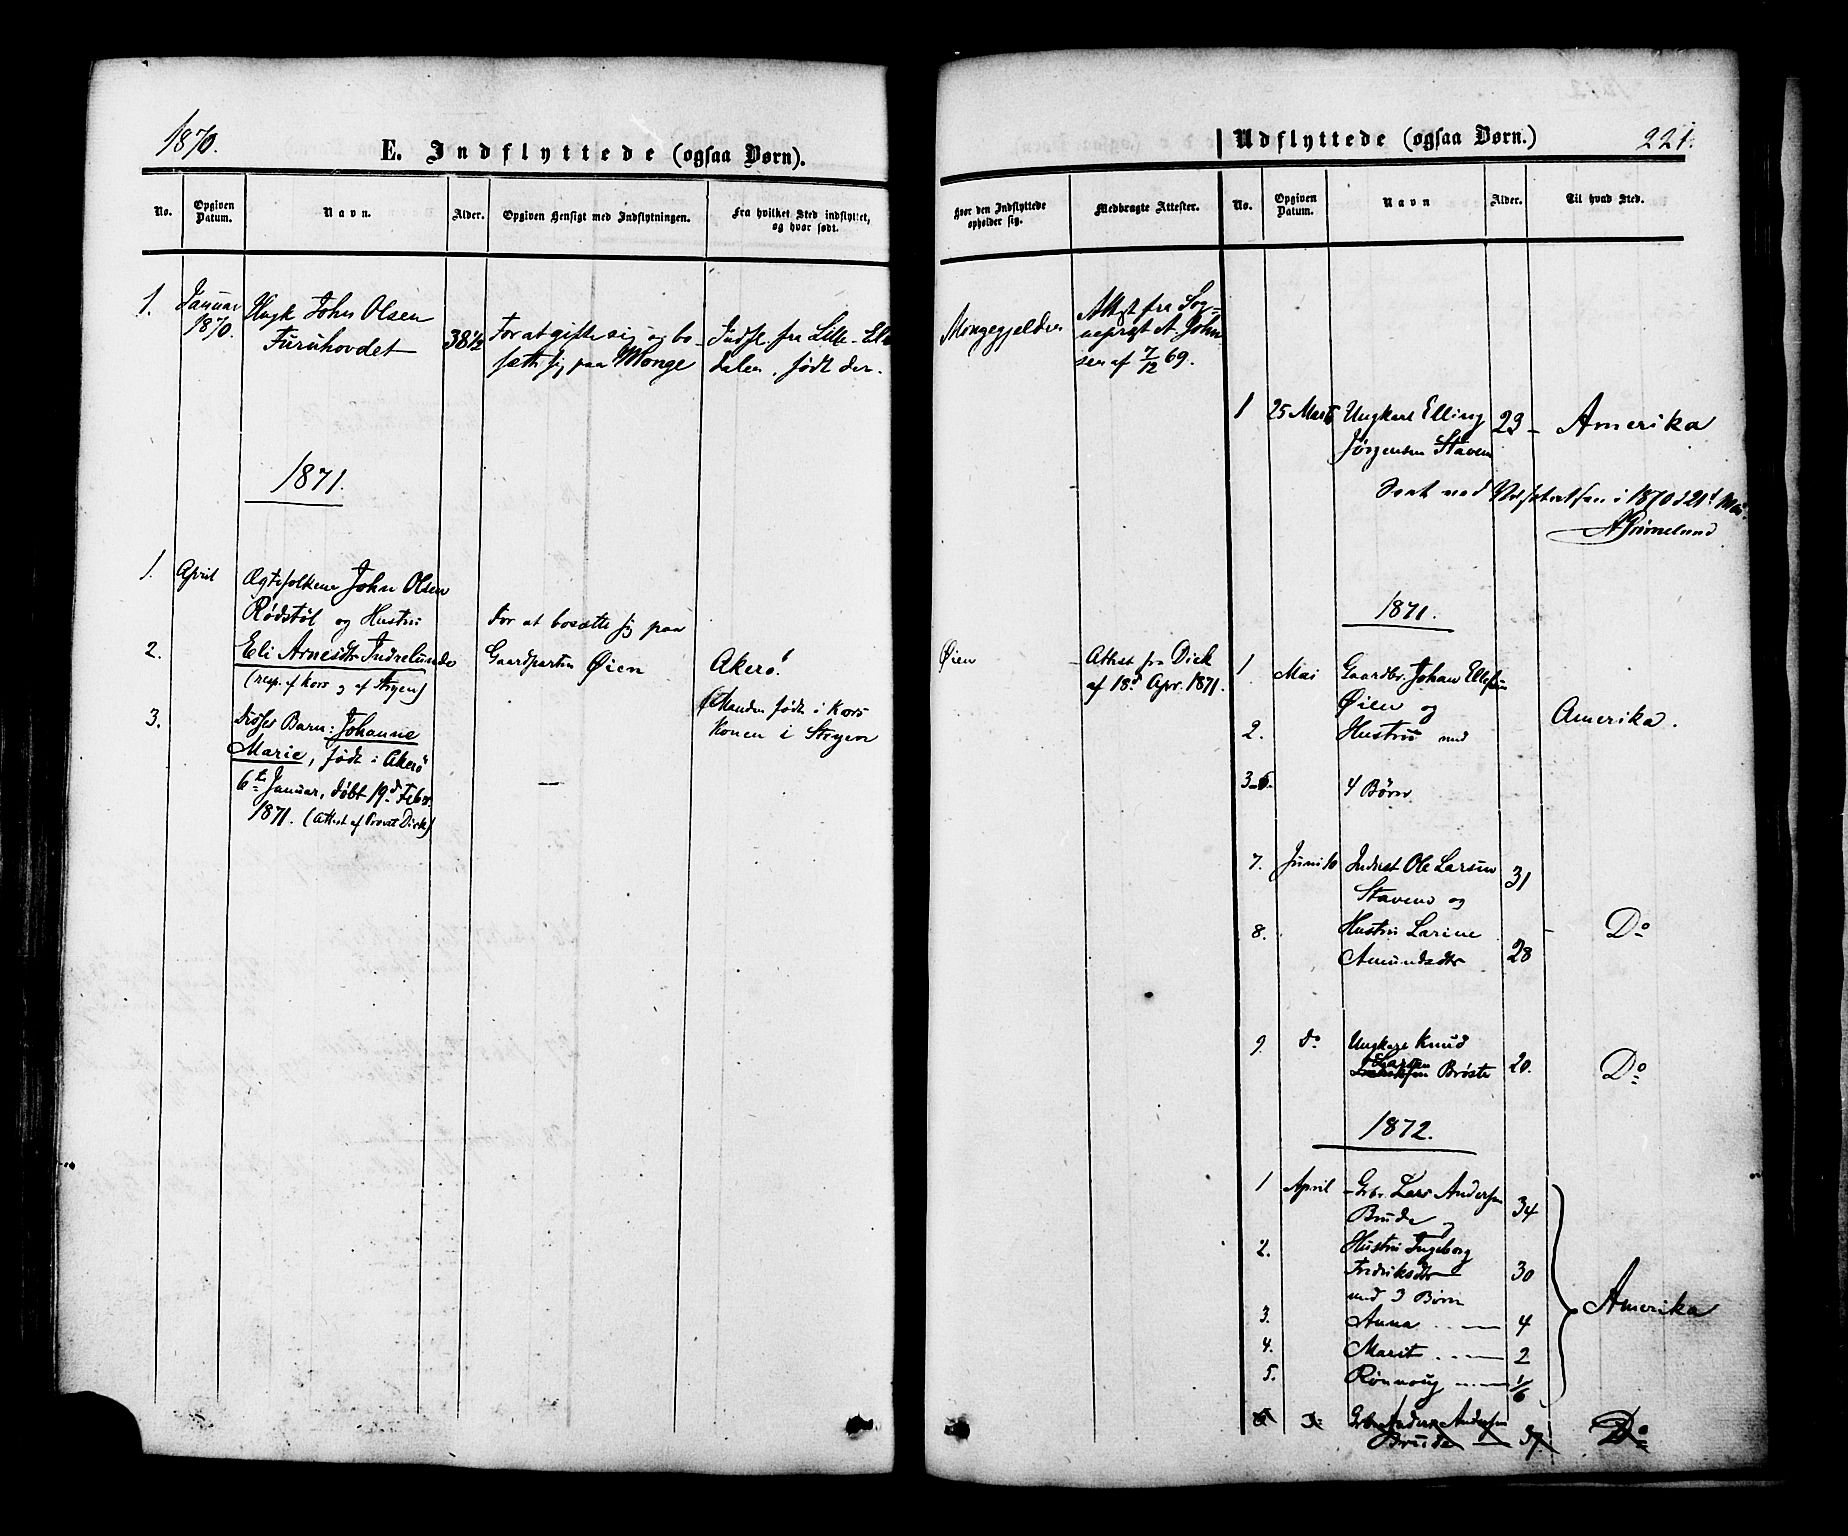 1870.
E. Indflyttede (ogsaa Børn).
No.
Opgiven Datum.
Navn.
Alder.
Opgiven Hensigt med Indflytningen.
Fra hvilket Sted indflyttet, og hvor født.
1.
Januar 1870.
Ungk John Olsen
Furuhovdet
38 1/2
For at gifte sig og bo-
sætte sig paa Monge
Indfl. fra Lille-El
dalen, født der.
1871.
1.
April
Ægtefolkene John Olsen
Rødstøl og Hustru
2.
Eli Arnesdtr Indrelunde
(resp. af Kors og af Stryen)
3.
Disses Barn: Johanne
Marie, født i Akerø
6te Januar, døbt 19d Febr.
1871. (Attest af Provst Dick)
For at bosætte sig paa
Gaardparten Øien
Akerø.
(Manden født i Kors
Konen i Stryen
Udflyttede (ogsaa Børn.)
221.
Hvor den Indflyttede opholder sig.
Medbragte Attester.
No.
Opgiven Datum.
Navn
Alder.
Til hvad Sted.
Mongegjelden
Attest fra Sog-
neprest A. John
sen af 7/12 69.
1
25 Marts
Ungkarl Elling
Jørgensen Staven
23
Amerika
i 1870 d 21d Mai.
1871.
Øien
Attest fra Dick
af 18d Apr. 1871.
1.
Mai
Gaardbr. Johan Ellefsen
Øien og
2.
Hustru med
3-6.
4 Børn
Amerika.
7.
Juni 10
Inderst Ole Larsen
Stavens og
31
8.
Hustru Larine
Amundsdtr
28
Do
9.
do
Ungkarl Knud
Larsen
Brøste
20.
Do
1872.
1
April
Gbr. Lars Andersen
Brude og
34
2.
Hustru Ingeborg
Fredriksdtr
30
med 3 Børn
3.
Anna
4
4.
Marit
2
5.
Rønnoug
1/6
Amerika
6
Do
Gbr. Anders Andersen
Brude
37.
Do